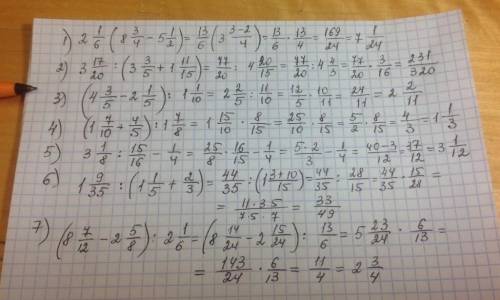 1) 2 1/6 · (8 3/4 - 5 1/2) = 13/6 · (3 (3-2)/4) = 13/6 · 13/4 = 169/24 = 7 1/24
2) 3 17/20 : (3 3/5 + 1 11/15) = 77/20 : 4 20/15 = 77/20 : 4 4/3 = 77/20 · 3/16 = 231/320
3) (4 3/5 - 2 1/5) : 1 1/10 = 2 2/5 : 11/10 = 12/5 · 10/11 = 24/11 = 2 2/11
4) (1 7/10 + 4/5) : 1 7/8 = 1 15/10 · 8/15 = 25/10 · 8/15 = 5/2 · 8/15 = 4/3 = 1 1/3
5) 3 1/8 : 15/16 - 1/4 = 25/8 · 16/15 - 1/4 = 5·2/3 - 1/4 = 40-3/12 = 37/12 = 3 1/12
6) 1 9/35 : (1 1/5 + 2/3) = 44/35 : (1 3+10/15) = 44/35 : 28/15 = 44/35 · 15/28 =
= 11·3·5/7·5·7 = 33/49
7) (8 7/12 - 2 5/8) : 2 1/6 = (8 14/24 - 2 15/24) : 13/6 = 5 23/24 · 6/13 =
= 143/24 · 6/13 = 11/4 = 2 3/4